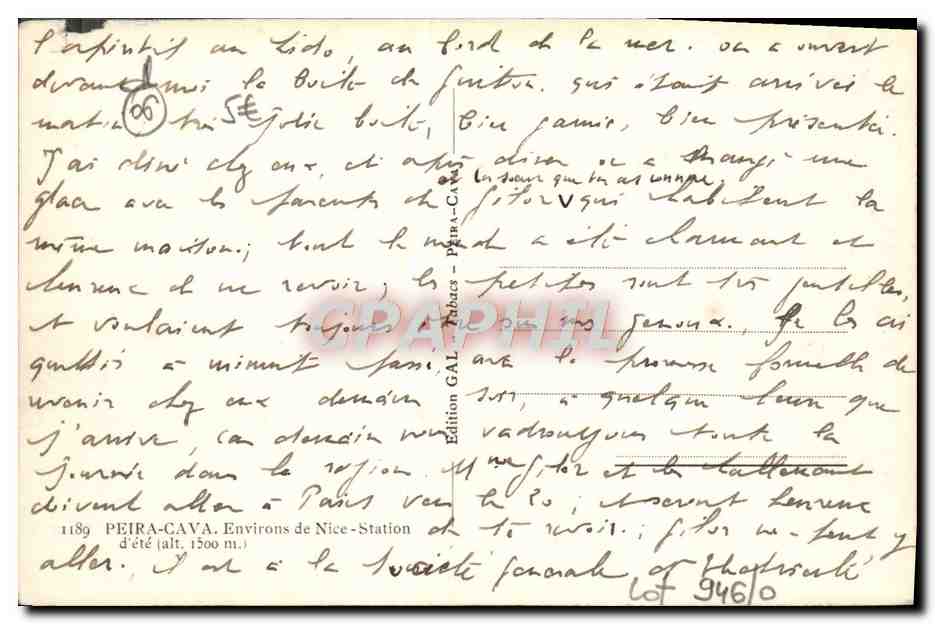 l'apéritif au Lido, au bord de la mer. on a ouvert
devant moi la boîte de qui était arrivée le
matin très jolie boîte, bien garnie, bien présentée.
06
5€
J'ai diné chez eux, et après diner on a mangé une
la soeur que tu as connue
glace avec les parents de Gilor qui habitent la
même maison ; tout le monde a été charmant et
heureux de me revoir ; les petites sont très gentilles,
et voulaient toujours être sur mes genoux. Je les ai
quittés à minuit passé, avec la promesse formelle de
revenir chez eux demain soir, à quelque heure que
j'arrive, car demain nous toute la
journée dans la région. Mme Gilor et les
doivent aller à Paris vers le 20 ; et seront heureux
de te revoir. ; Gilor ne peut y
aller. il est à la Société générale et
1189 PEIRA-CAVA. Environs de Nice-Station
d'été (alt. 1500 m.)
Edition GAL - Tabacs - PEIRA-CAVA
CPAPHIL
Lot 946/0